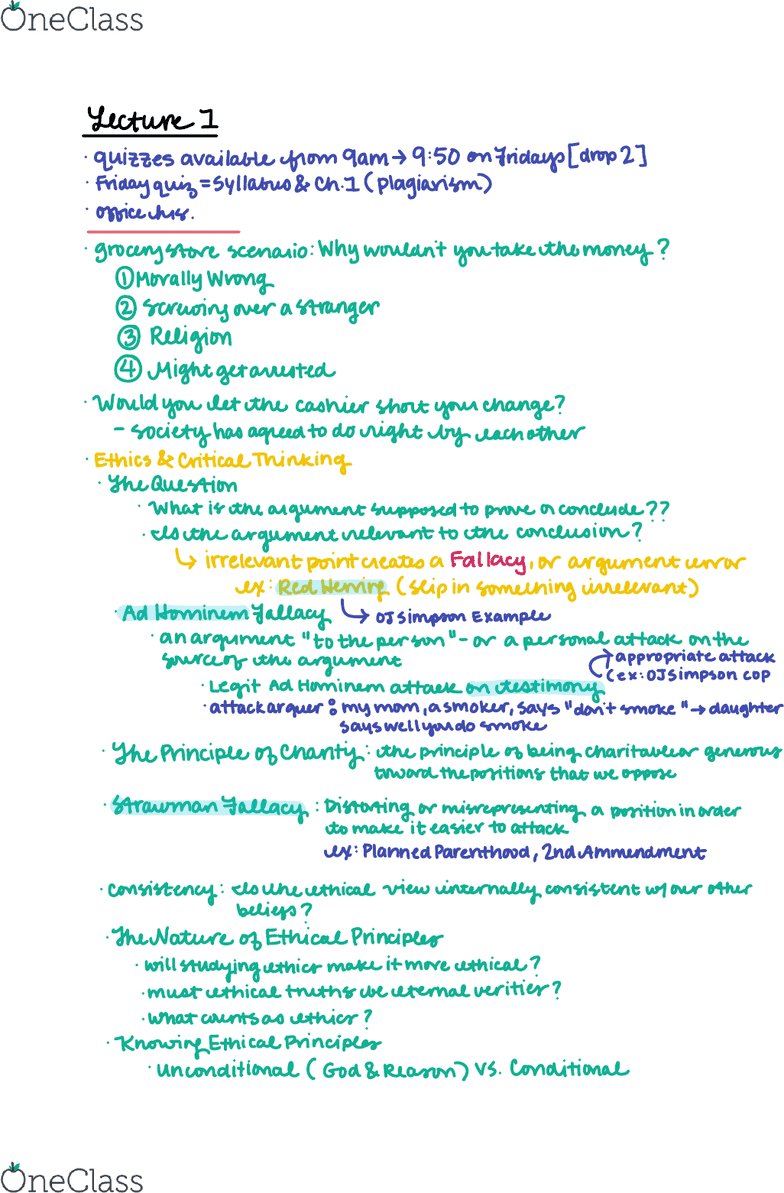 OneClass
Lecture 1
· quizzes available from 9am → 9:50 on Fridays [drop 2]
· Friday quiz = Syllabus & Ch.1 (plagiarism)
· office hrs.
· grocery store scenario: Why wouldn't you take the money?
① Morally Wrong
② Screwing over a stranger
③ Religion
④ Might get arrested
· Would you let the cashier short your change?
- society has agreed to do right by each other
· Ethics & Critical Thinking
· The Question
· What is the argument supposed to prove or conclude??
· Is the argument relevant to the conclusion?
↳ irrelevant point creates a Fallacy, or argument error
ex: Red Herring (slip in something irrelevant)
· Ad Hominem Fallacy
↳ OJ Simpson Example
· an argument "to the person" - or a personal attack on the
source of the argument
appropriate attack
(ex: OJ Simpson cop
· Legit Ad Hominem attack on testimony
· attack arguer: my mom, a smoker, says "don't smoke" → daughter
says well you do smoke
· The Principle of Charity: the principle of being charitable or generous
toward the positions that we oppose
· Strawman Fallacy: Distorting or misrepresenting a position in order
to make it easier to attack
ex: Planned Parenthood, 2nd Ammendment
· consistency: Is the ethical view internally consistent w/ our other
beliefs?
· The Nature of Ethical Principles
· will studying ethics make it more ethical?
· must ethical truths be eternal verities?
· what counts as ethics?
· Knowing Ethical Principles
· Unconditional (God & Reason) vs. Conditional
OneClass